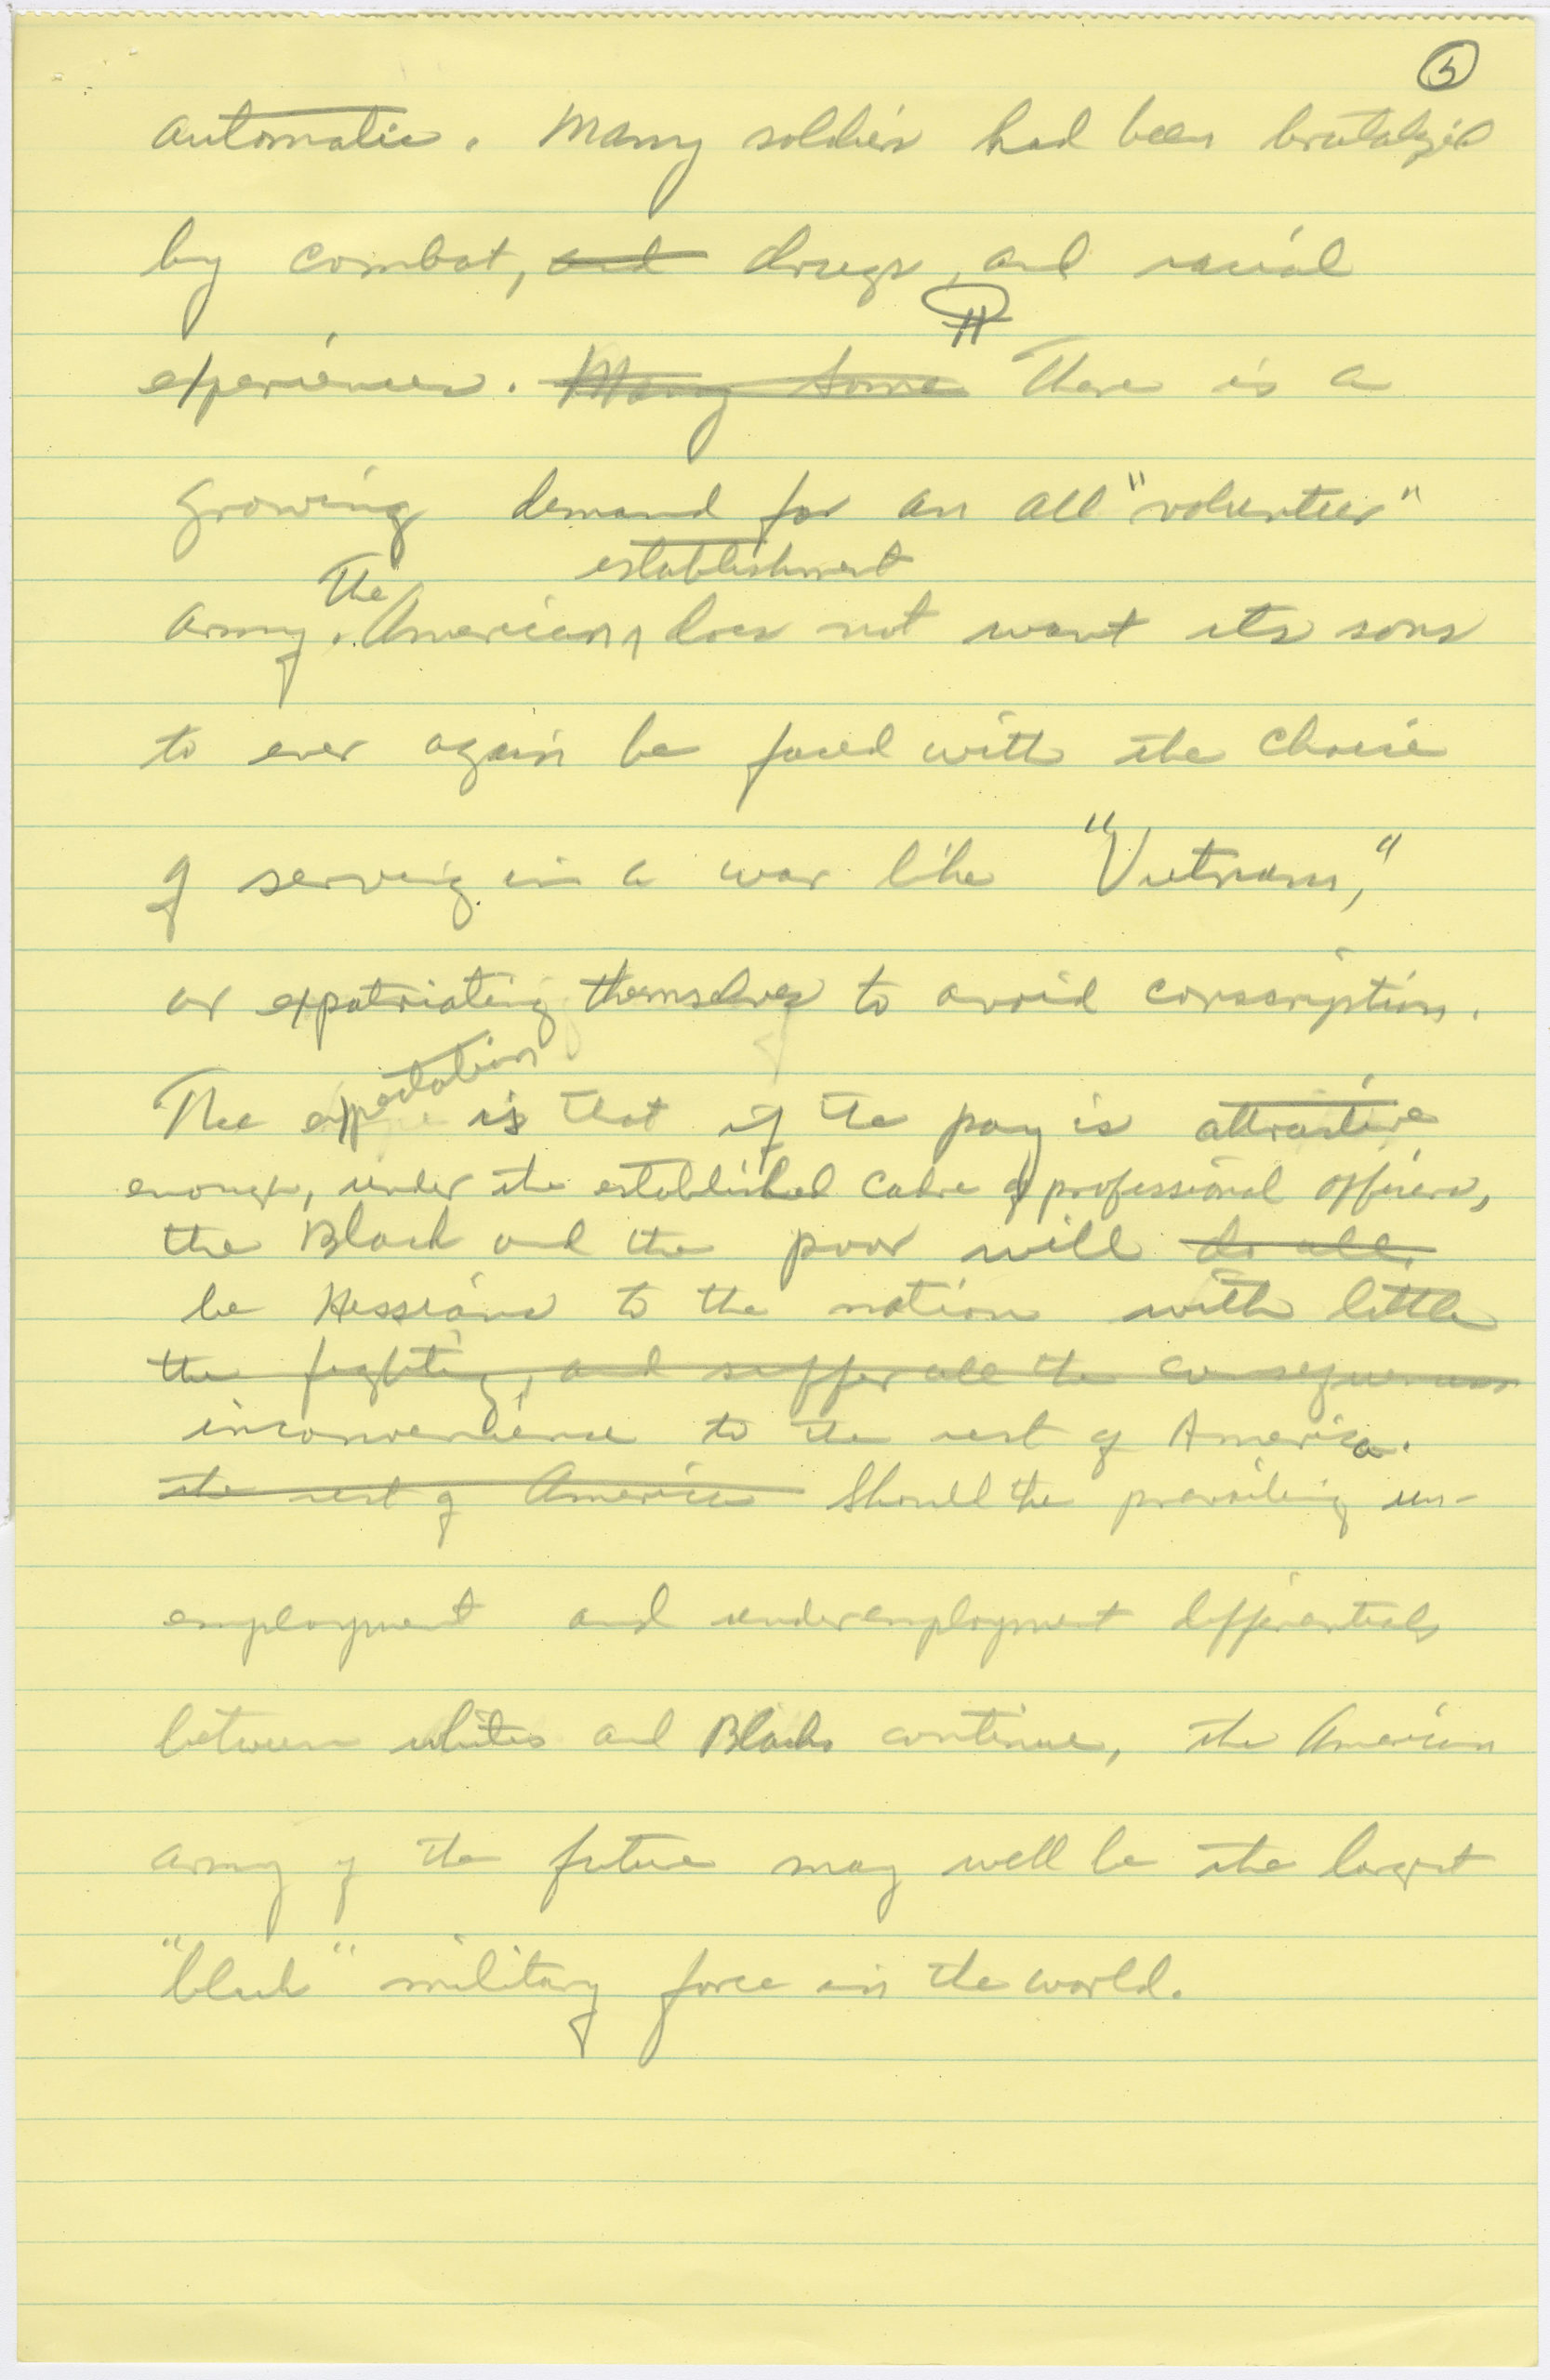 5
automatic. Many soldiers had been brutalized
by combat, and drugs, and racial
experiences. Many Some ¶ There is a
growing demand for an all "volunteer"
The establishment
army. American does not want its sons
to ever again be faced with the choice
of serving in a war like "Vietnam,"
or expatriating themselves to avoid conscription.
The expectation is that if the pay is attractive
enough, under the established cadre of professional officers,
the Black and the poor will do all
be Hessians to the nation with little
the fighting, and suffer all the consequences
inconvenience to the rest of America.
the rest of America Should the prevailing un-
employment and underemployment differentials
between whites and Blacks continue, the American
army of the future may well be the largest
"black" military force in the world.